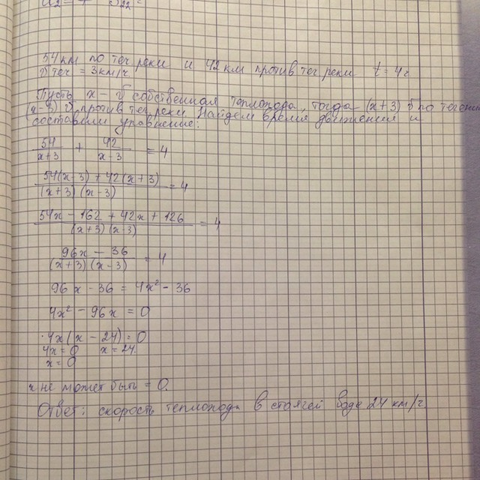 54 км по теч реки и 42 км против теч реки t = 4 ч
υ теч = 3 км/ч
Пусть x - υ собственная теплохода, тогда (x+3) υ по течени
(x-3) υ против теч реки. Найдем время движения и
составили уравнение:
54/(x+3) + 42/(x-3) = 4
(54(x-3) + 42(x+3))/((x+3)(x-3)) = 4
(54x - 162 + 42x + 126)/((x+3)(x-3)) = 4
(96x - 36)/((x+3)(x-3)) = 4
96x - 36 = 4x² - 36
4x² - 96x = 0
4x(x - 24) = 0
4x = 0 x = 24
x = 0
x не может быть = 0.
Ответ: скорость теплохода в стоячей воде 24 км/ч